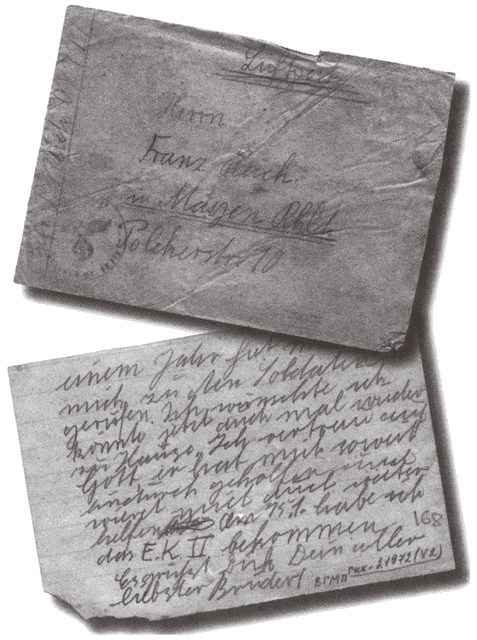 Luftpost
Herrn
Franz
in Mayen Rhld
Polcherstr. 10
einem Jahr hat
mich zu den Soldaten
gerufen. Ich wünschte ich
könnte jetzt auch mal wieder
zu Hause. Ich vertrau auf
Gott, er hat mir soweit
geholfen und
wird mir auch weiter
helfen. Am habe ich
das E.K II bekommen
Es grüßt Dich Dein aller
liebster Bruder!
168
ВГМП 21972 (42)